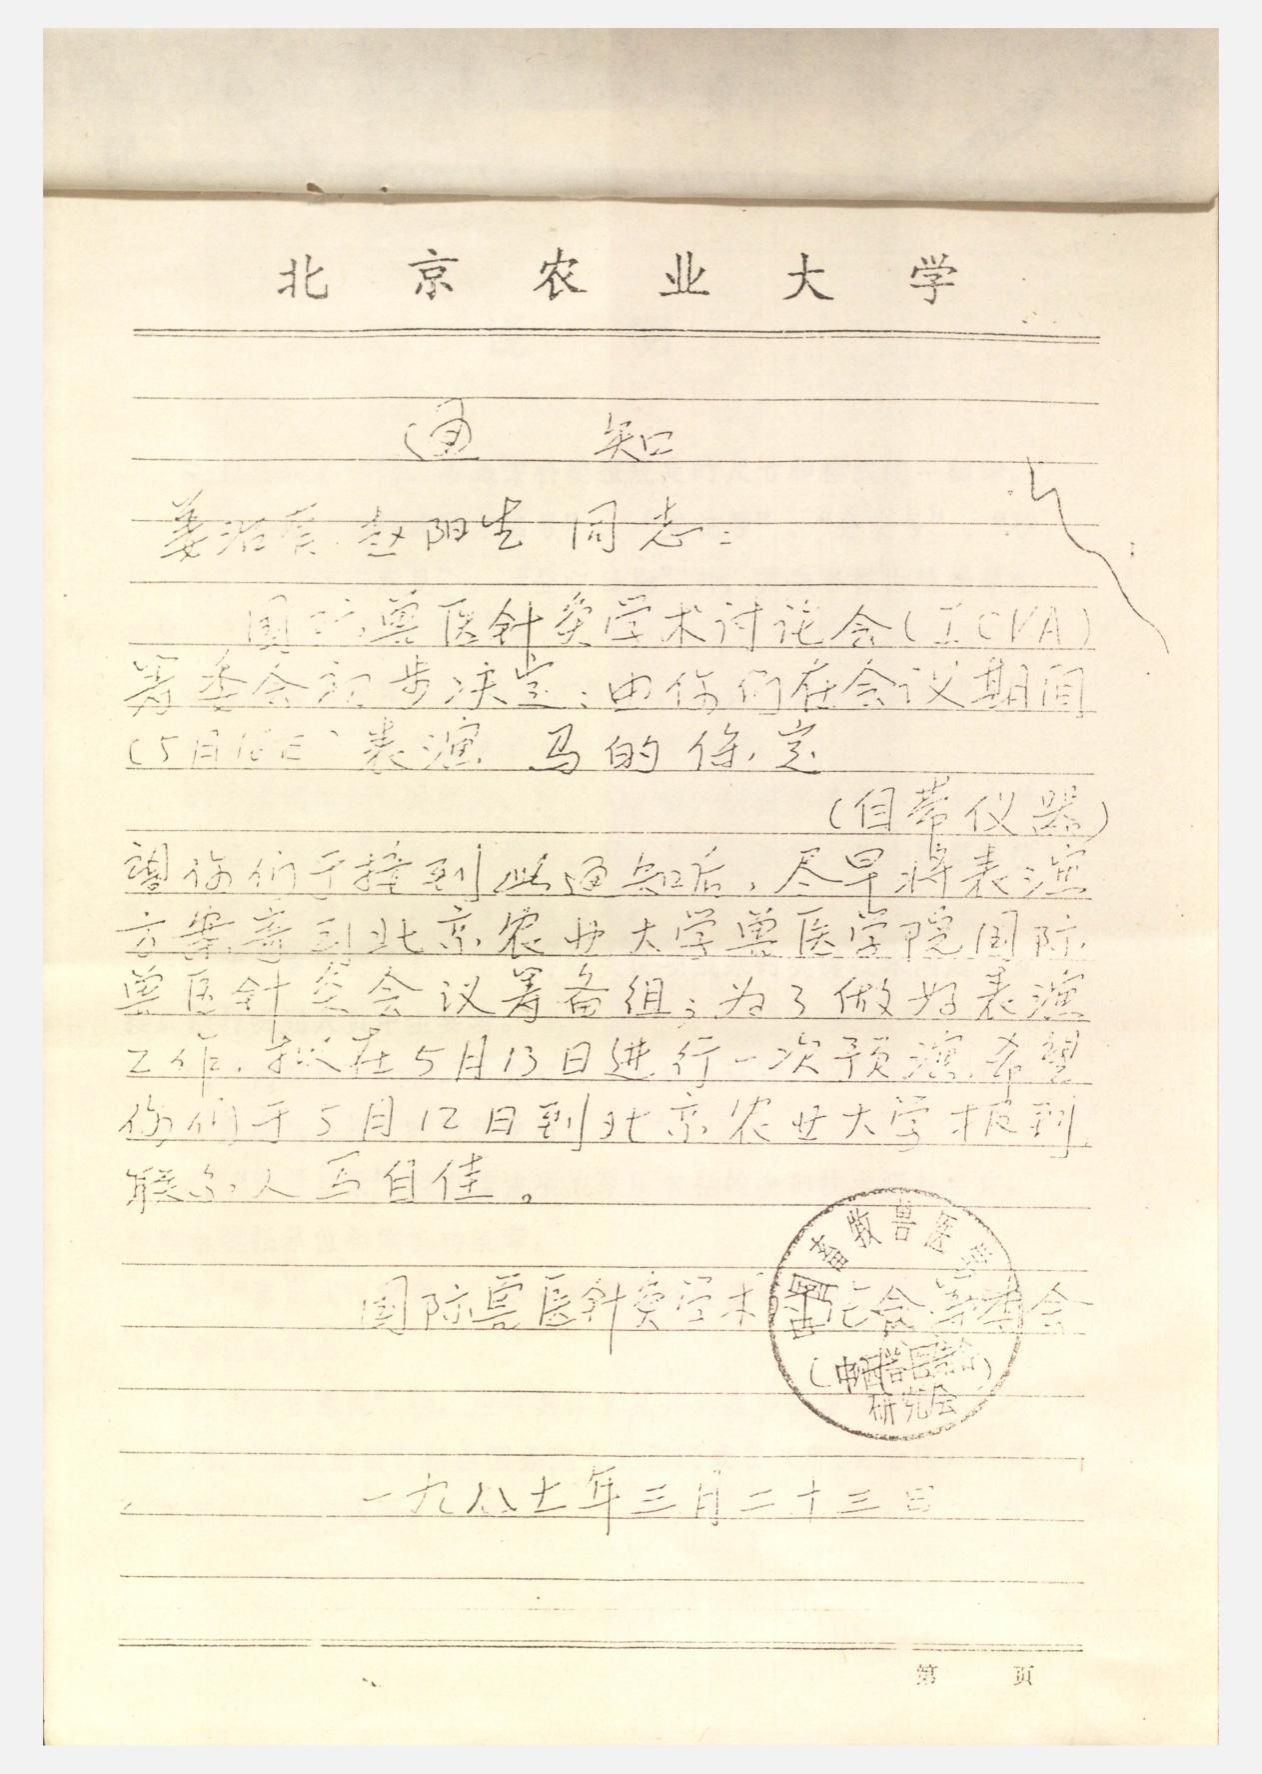 北京农业大学
通知
姜 赵阳生 同志：
国际兽医针灸学术讨论会(ICVA)
筹委会初步决定：由你们在会议期间
(5月 日)表演 马的保定
(自带仪器)
望你们于接到此通知后，尽早将表演
方案寄到北京农业大学兽医学院国际
兽医针灸会议筹备组；为了做好表演
工作，拟在5月13日进行一次预演，希望
你们于5月12日到北京农业大学报到
联系人 自佳。
畜牧兽医学
国际兽医针灸学术讨论会筹委会
(中西兽医结合)
研究会
一九八七年三月二十三日
第 页